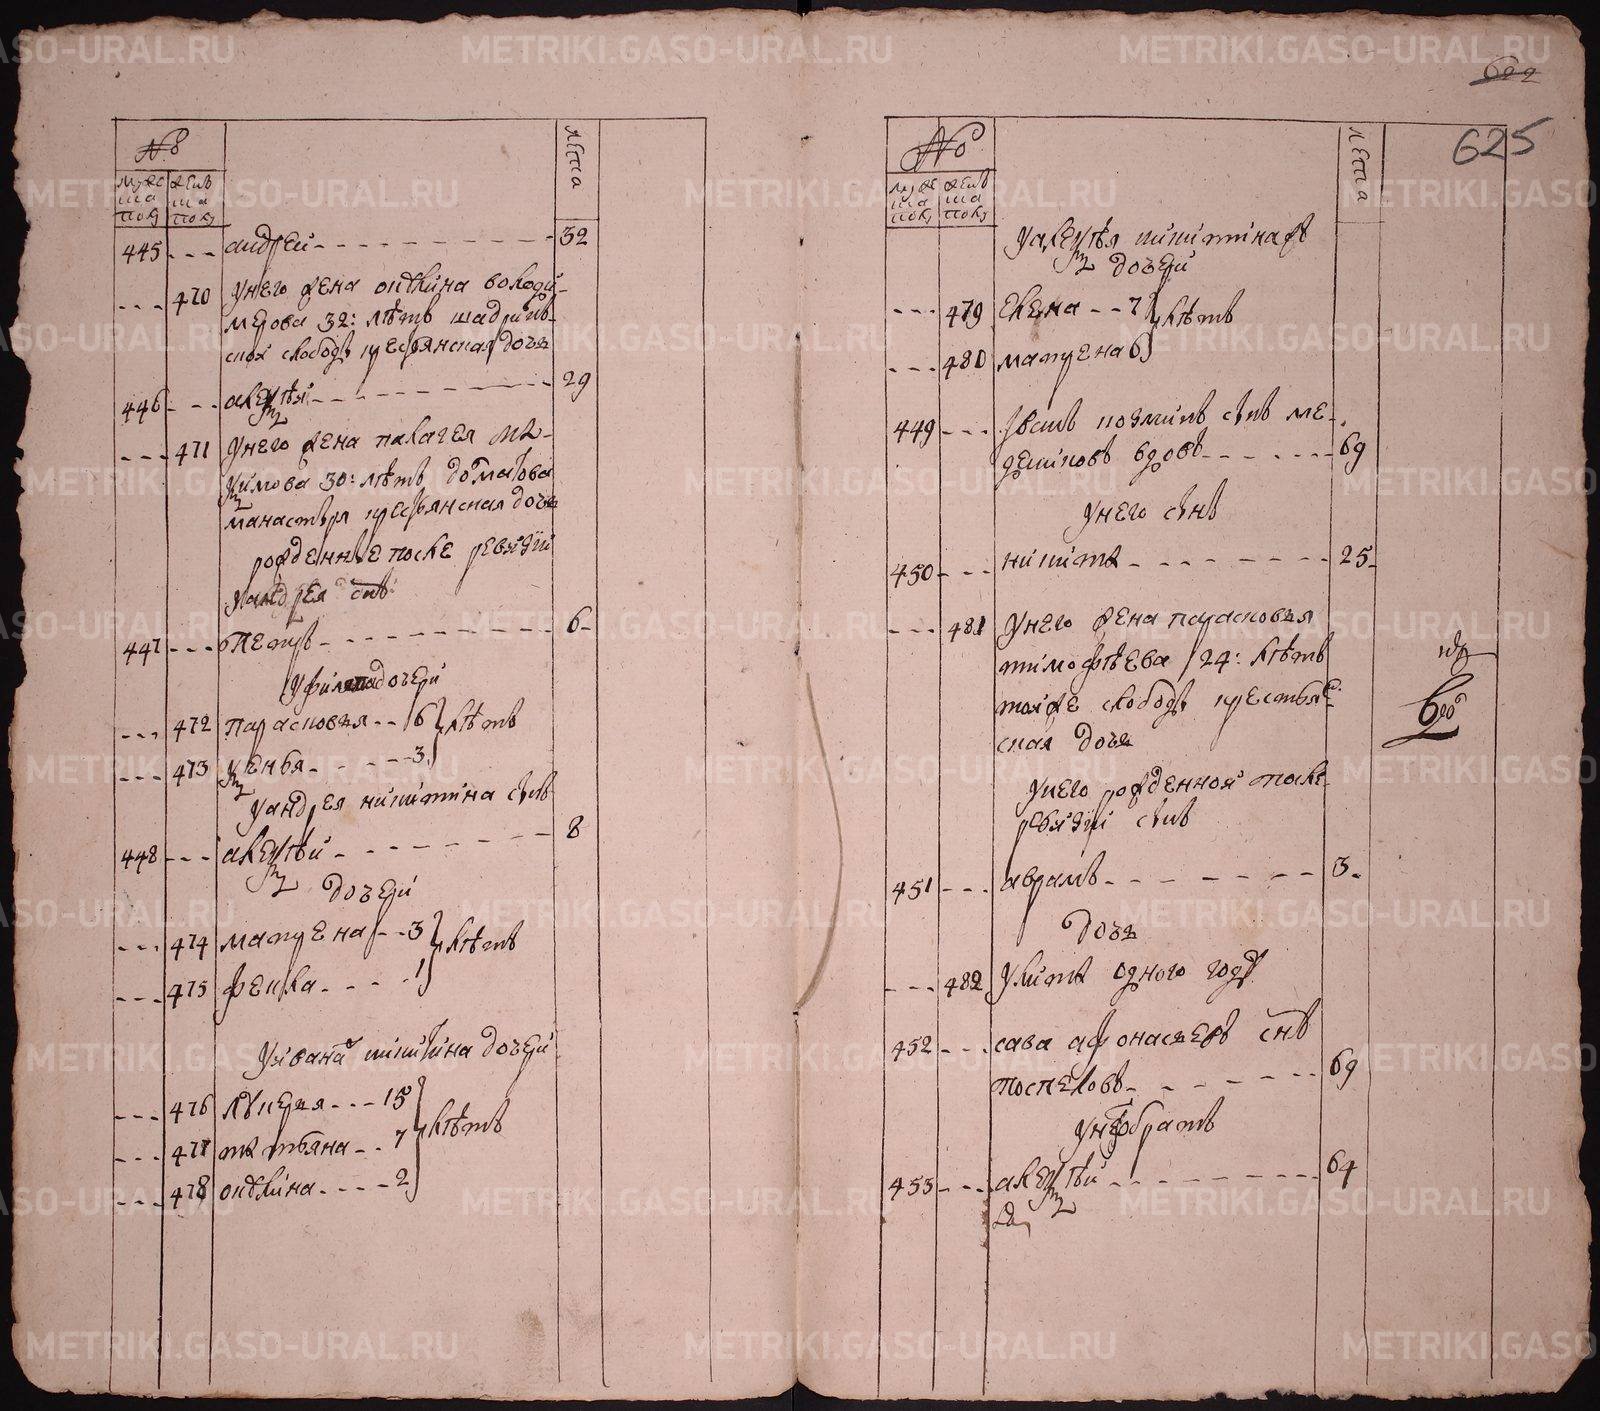 №
муже
ска
полу
женъ
ска
полу
лѣта
445 андреи 32
470 унего жена акилина володи-
мерова 32: лѣтъ шадринъ-
ской слободы крестьянская дочь
446 алеѯѣй 29
471 унего жена палагея
ѯимова 30: лѣтъ далматова
манастыря крестьянская дочь
рожденные после ревизии
уандрея снъ
447 петръ 6
дочери
472 парасковья 6 лѣтъ
473 ѯенья 3
уандрея никитина снъ
448 алеѯѣй 8
дочери
474 матрена 3 лѣтъ
475 фекла 1
уивана никитина дочери
476 лукерья 15
477 татьяна 7 лѣтъ
478 акилина 2
622
625
№
муже
ска
полу
женъ
ска
полу
лѣта
уалеѯѣя никитина
дочери
479 елена 7 лѣтъ
480 матрена 6
449 иванъ козминъ снъ ме-
дениковъ вдовъ 69
унего снъ
450 никита 25
481 унего жена парасковья
тимофѣева 24: лѣтъ
тояже слободы крестьян-
ская дочь
унего рожденной после
ревизии снъ
451 аврамъ 3
дочь
482 улита одного году
452 сава афонасьевъ снъ
поспеловъ 69
унего братъ
453 алеѯѣй 64